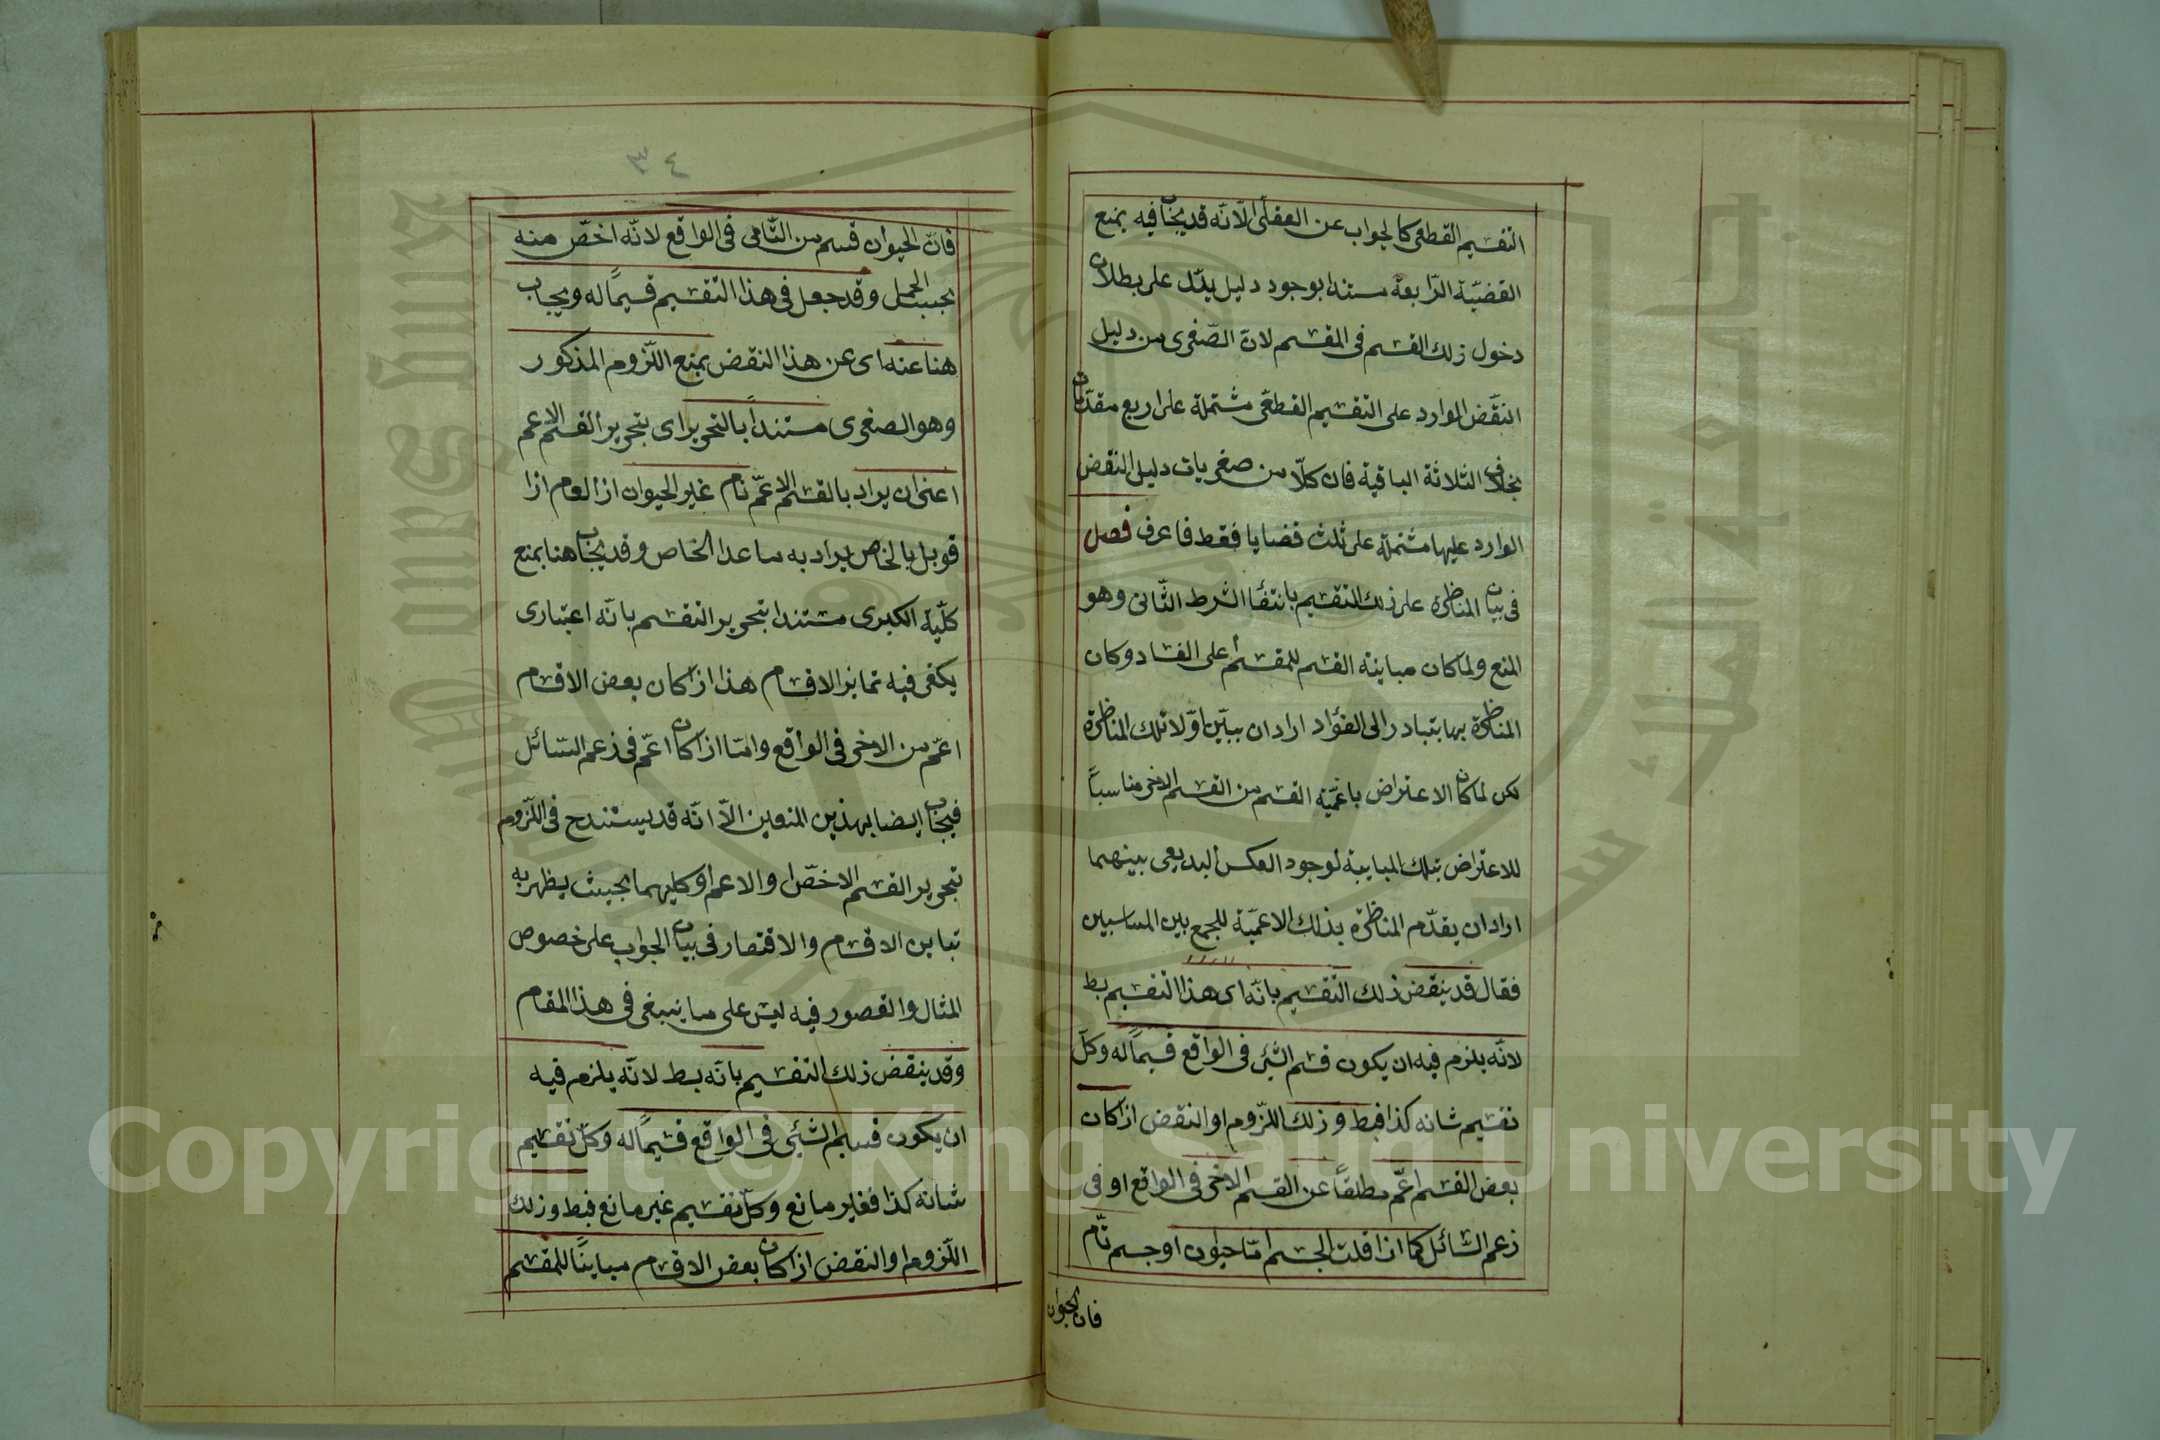 التقسيم القطعى كالجواب عن العقلى الا انه قد يجاب فيه بمنع
القضية الرابعة مستندا بوجود دليل يدل على بطلان
دخول ذلك القسم فى المقسم لان الصغرى من دليل
النقض الوارد على التقسيم القطعى مشتملة على اربع مقدمات
بخلاف الثلاثة الباقية فان كلا من صغريات دليل النقض
الوارد عليها مشتملة على ثلث قضايا فقط فاعرف فصل
فى بيان المناظرة على ذلك التقسيم بانتفاء الشرط الثانى وهو
المنع ولما كان مباينة القسم للمقسم اعلى الفساد وكان
المناظرة بها يتبادر الى الفؤاد اراد ان يبين اولا تلك المناظرة
لكن لما كان الاعتراض باعمية القسم من القسم الاخر مناسبا
للاعتراض بتلك المباينة لوجود العكس البديعى بينهما
اراد ان يقدم المناظرة بذلك الاعمية للجمع بين المناسبين
فقال قد ينقض ذلك التقسيم بانه اى هذا التقسيم بط
لانه يلزم فيه ان يكون قسم الشئ فى الواقع قسيما له وكل
تقسيم شانه كذا فبط وذلك اللزوم او النقض اذا كان
بعض القسم اعم مطلقا من القسم الاخر فى الواقع او فى
زعم السائل كما اذا قلت الجسم اما حيوان او جسم نام
فان الحيوان
٣٤
فان الحيوان قسم من النامى فى الواقع لانه اخص منه
بحسب الحمل وقد جعل فى هذا التقسيم قسيما له ويجاب
هنا عنه اى عن هذا النقض بمنع اللزوم المذكور
وهو الصغرى مستندا بالتحرير اى بتحرير القسم الاعم
اعنى ان يراد بالقسم الاعم نام غير الحيوان اذ العام اذا
قوبل بالخاص يراد به ما عدا الخاص وقد يجاب هنا بمنع
كلية الكبرى مستندا بتحرير التقسيم بانه اعتبارى
يكفى فيه تمايز الاقسام هذا اذا كان بعض الاقسام
اعم من الاخر فى الواقع واما اذا كان اعم فى زعم السائل
فيجاب ايضا بهذين المنعين الا انه قد يستند ح فى اللزوم
بتحرير القسم الاخص او الاعم او كليهما بحيث يظهر به
تباين الاقسام والاقتصار فى بيان الجواب على خصوص
المثال والقصور فيه ليس على ما ينبغى فى هذا المقام
وقد ينقض ذلك التقسيم بانه بط لانه يلزم فيه
ان يكون قسيم الشئ فى الواقع قسيما له وكل تقسيم
شانه كذا فغير مانع وكل تقسيم غير مانع فبط وذلك
اللزوم او النقض اذا كان بعض الاقسام مباينا للمقسم
Copyright © King Saud University